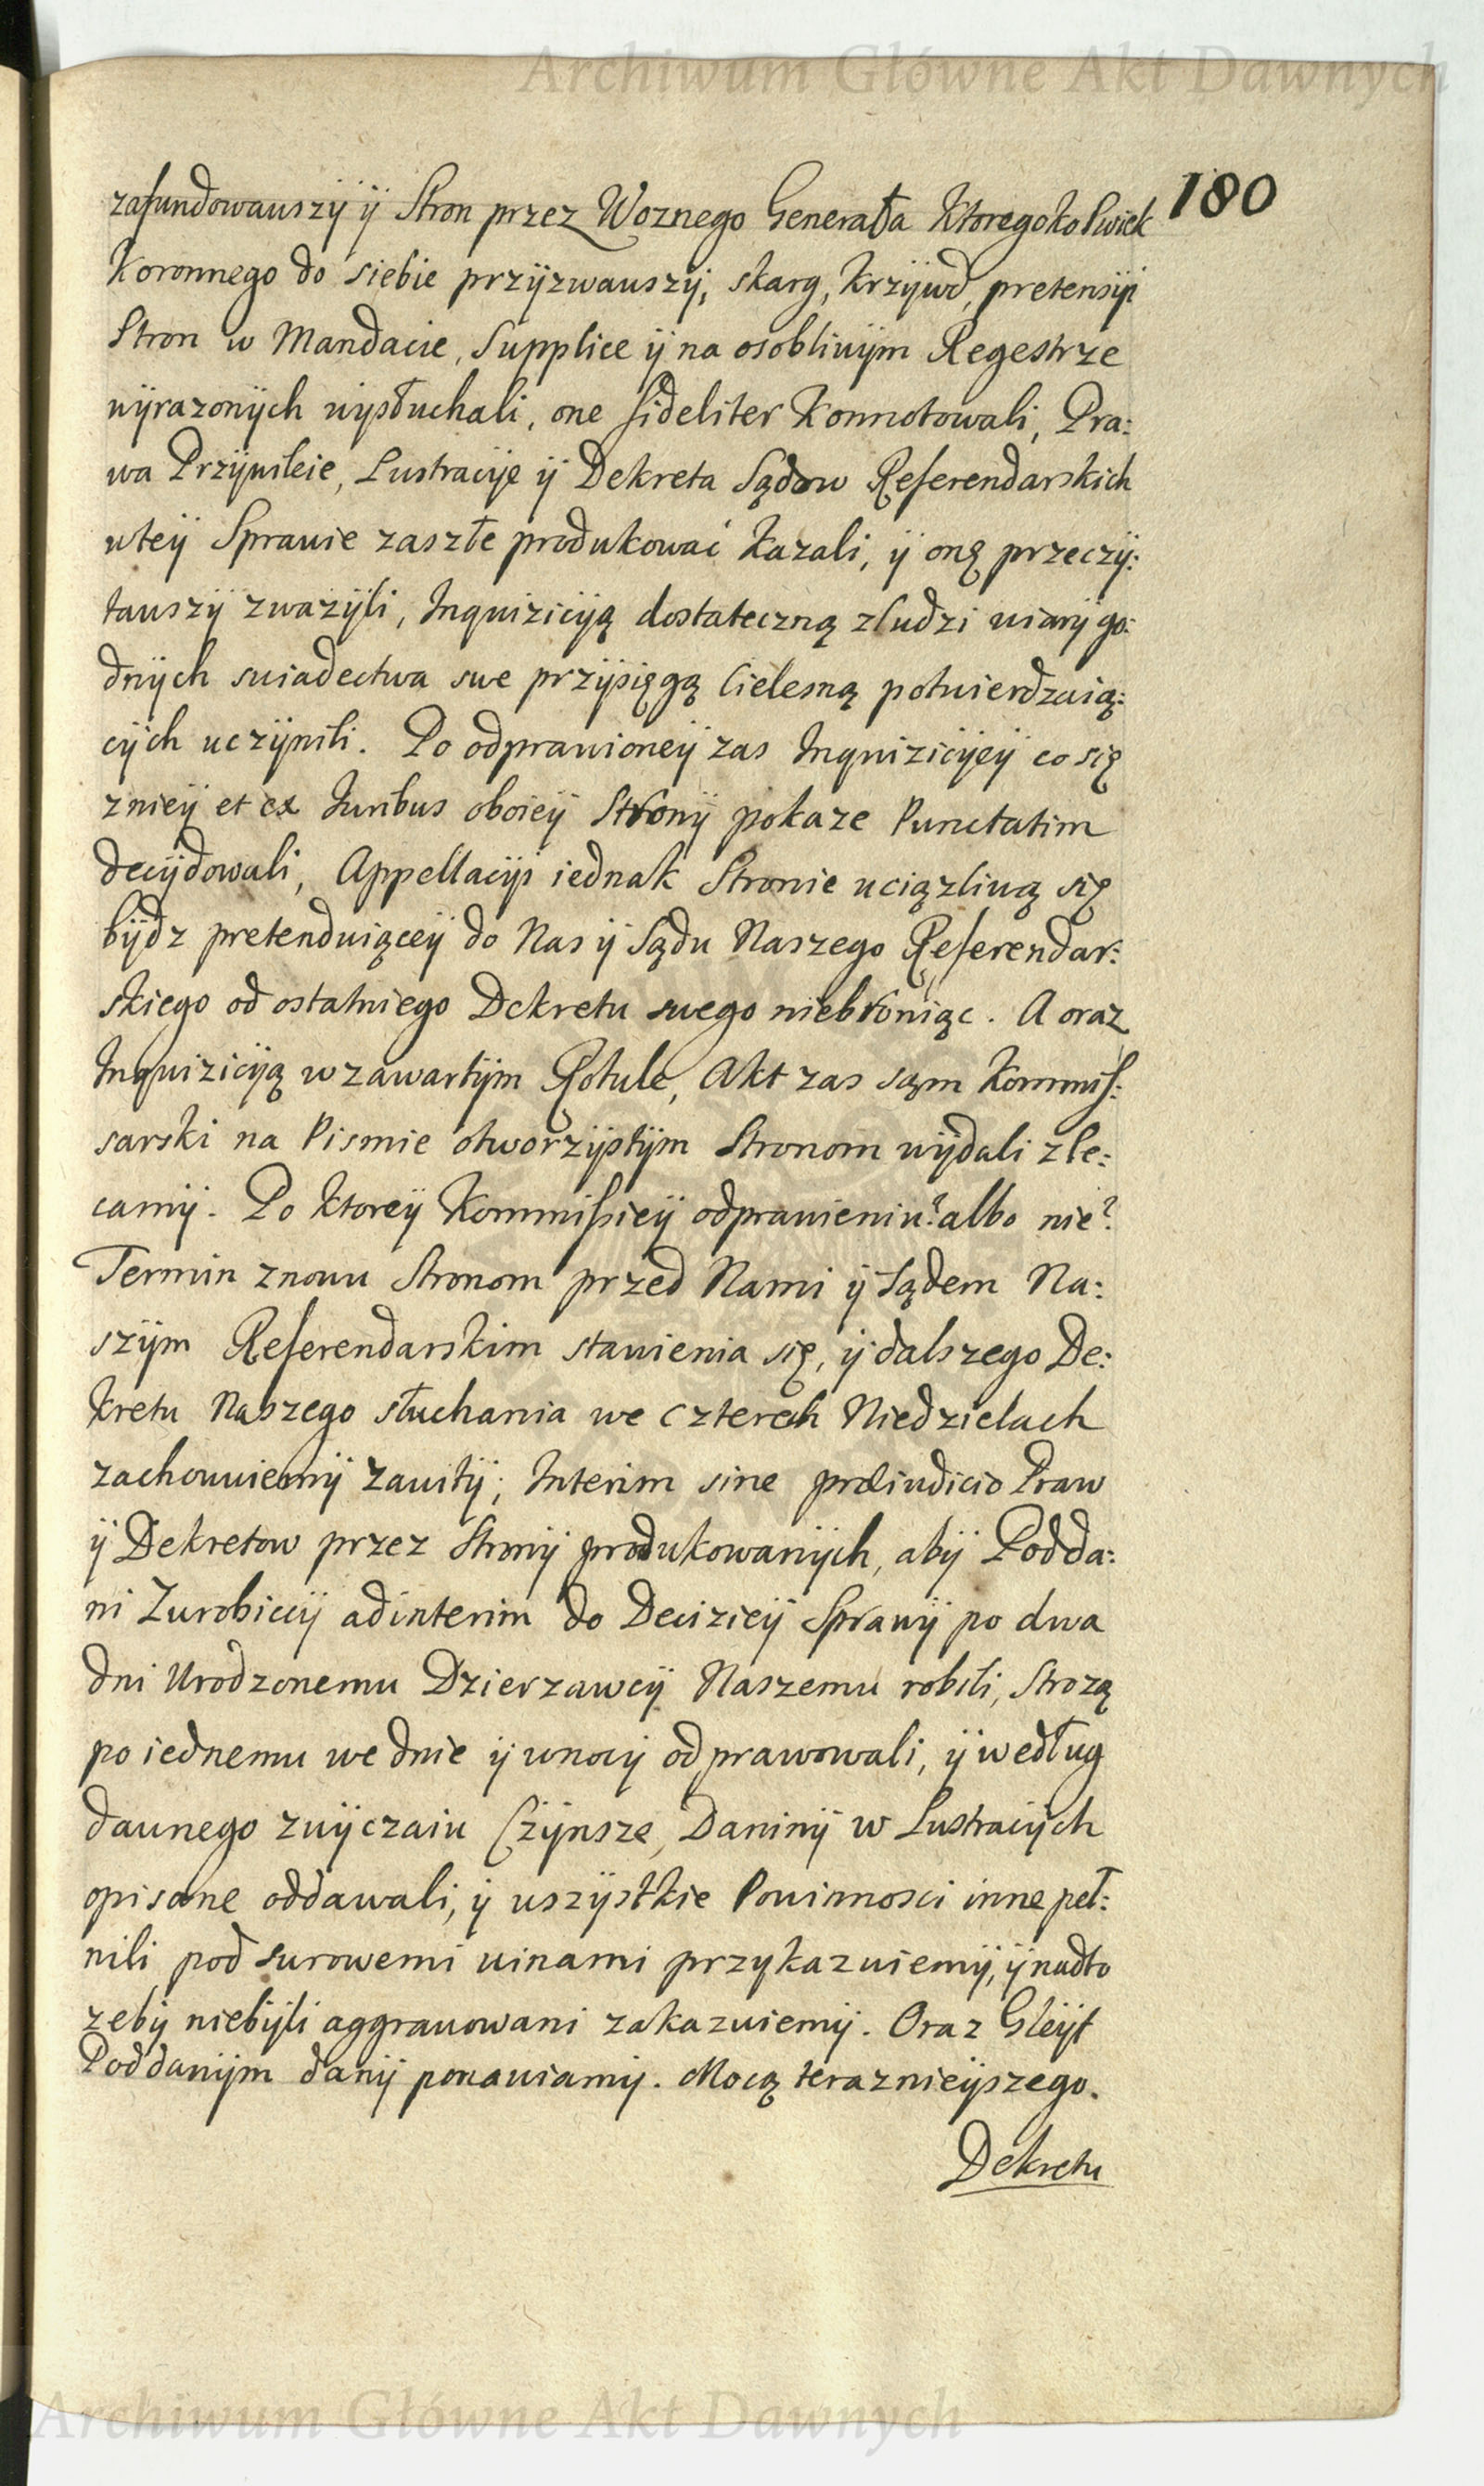 Archiwum Główne Akt Dawnych
180
zafundowauszÿ ÿ Stron przez Woznego Generała Ktoregokolwiek
Koronnego do siebie przÿzwauszÿ, skarg, Krzÿwd, pretensÿi
Stron w Mandacie, Supplice ÿ na osobliuÿm Regestrze
uÿrazonÿch uÿsłuchali, one fideliter Konnotowali, Pra:
wa Przÿuileie, Lustracÿe ÿ Dekreta Sądow Referendarskich
uteÿ Sprauie zaszłe produkować kazali, ÿ onę przeczÿ:
tauszÿ zwazÿli, Inquizicÿą dostateczną zludzi uiarÿ go:
dnÿch suiadectwa swe przÿsięgą Cielesną potuierdzaią:
cÿch uczÿnili. Po odprauioneÿ zas Inquizicÿeÿ co się
znieÿ et ex Iuribus oboieÿ Stronÿ pokaze Punctatim
decÿdowali, Appellacÿi iednak Stronie uciązliuą się
bÿdz pretenduiąceÿ do Nas ÿ Sądu Naszego Referendar:
skiego od ostatniego Dekretu suego niebroniąc. A oraz
Inquizicÿą w zawartÿm Rotule, Akt zas sąm Kommis:
sarski na Pismie otworzÿstÿm Stronom uÿdali zle:
camÿ. Po Ktoreÿ Kommissieÿ odprauieniu? albo nie?
Termin znouu Stronom przed Nami ÿ Sądem Na:
szÿm Referendarskim stauienia się, ÿ dalszego De:
kretu Naszego słuchania we czterech Niedzielach
zachouuiemÿ Zauitÿ; Interim sine præiudicio Praw
ÿ Dekretow przez Stronÿ produkowanÿch, abÿ Podda:
ni Zurobiccÿ adinterim do Decizieÿ Sprawÿ po dwa
dni Urodzonemu Dzierzawcÿ Naszemu robili, Strozą
po iednemu we dnie ÿ unocÿ odprawowali, ÿ według
daunego zuÿczaiu Czÿnsze, Daninÿ w Lustracÿch
opisane oddawali, ÿ uszÿstkie Pouinnosci inne peł:
nili pod surowemi uinami przykazuiemÿ, ÿ nadto
zebÿ niebÿli aggrauowani zakazuiemÿ. Oraz Gleÿt
Poddanÿm danÿ ponauiamÿ. Mocą teraznieÿszego.
Dekretu
Archiwum Główne Akt Dawnych